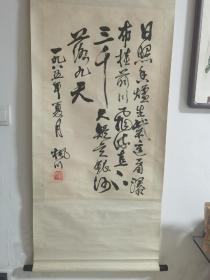 日照香爐生紫遥看瀑
布挂前川飛流直下
三千尺疑是銀河
落九天
一九八五年夏月 楓川